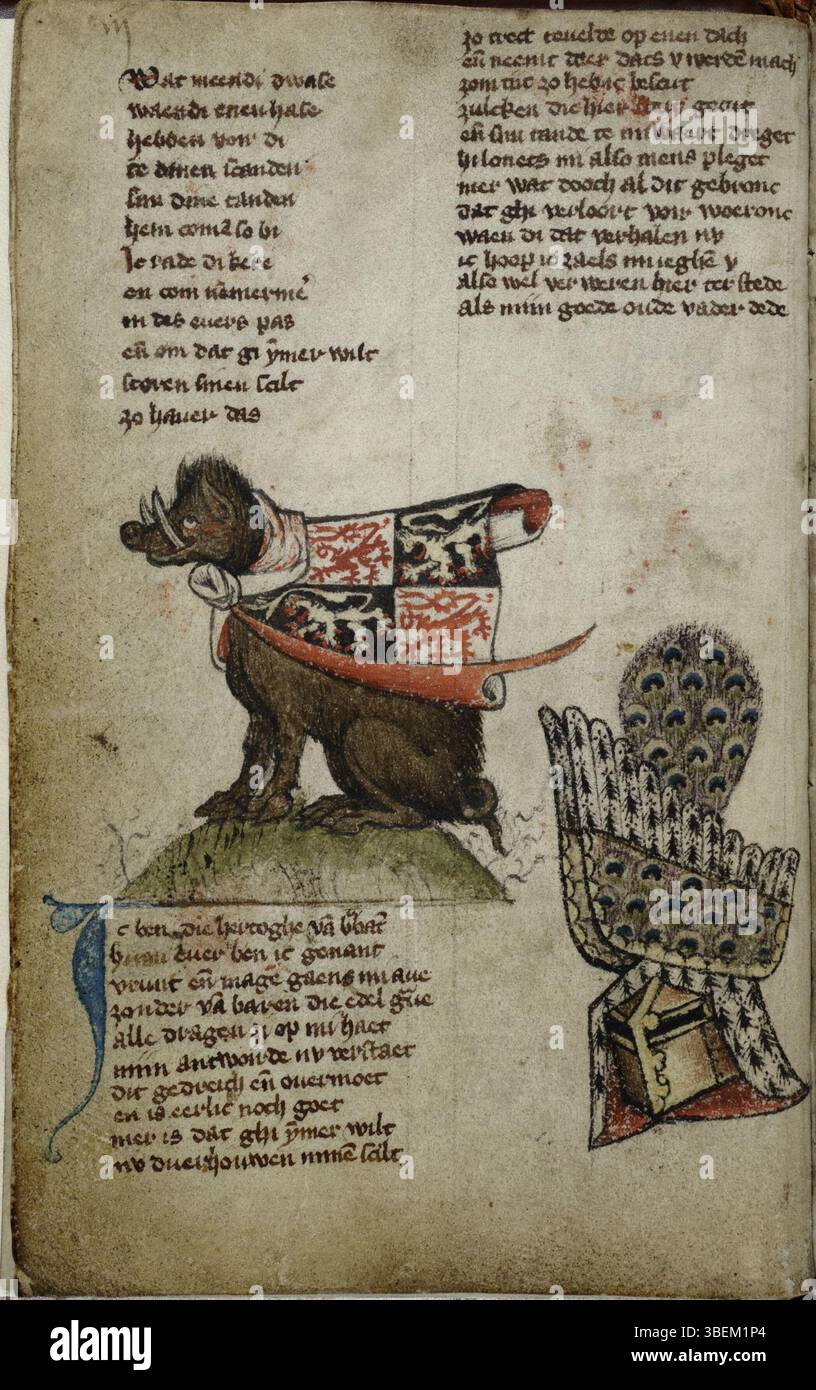 iij
Wat meendi dwase
waendi enen hase
hebben voir di
te dinen scanden
sun dine tanden
hem comē so bi
Ic rade di kere
en com nēmermē
in des evers pas
eñ om dat gi ȳmer wilt
storen sinen scilt
zo haver das
zo trect te velde op enen dach
eñ neemt deer dats v werdē mach
zom tut zo hebic beseut
zulcken die hier
eñ sijn tande te mi waert dreget
hi lonets mi also mens pleget
mer wat dooch al dit gebronc
dat ghi verloort voir woeronc
waen di dat verhalen nv
ic hoop ic zaels mi ieghē v
also wel verweren hier ter stede
als mijn goede oude vader dede
Ic ben die hertoghe vā bbāt
ever ben ic genant
vrient eñ mage gaens mi ave
zonder vā baren die edel gūe
alle dragen si op mi haet
mijn antworde nv verstaet
dit gedreich eñ overmoet
en is eerlic noch goet
mer is dat ghi ȳmer wilt
nv dverhouwen minē scilt
alamy
alamy
Image ID: 3BEM1P4
www.alamy.com